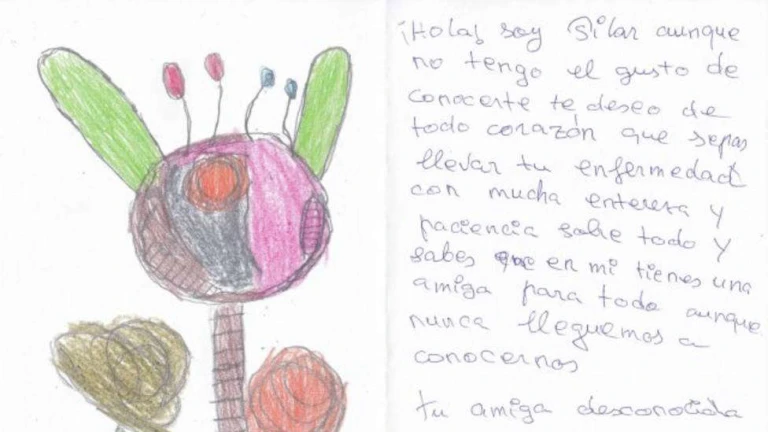 ¡Hola! soy Pilar aunque
no tengo el gusto de
conocerte te deseo de
todo corazón que sepas
llevar tu enfermedad
con mucha entereza y
paciencia sobre todo y
sabes que en mi tienes una
amiga para todo aunque
nunca lleguemos a
conocernos
tu amiga desconocida